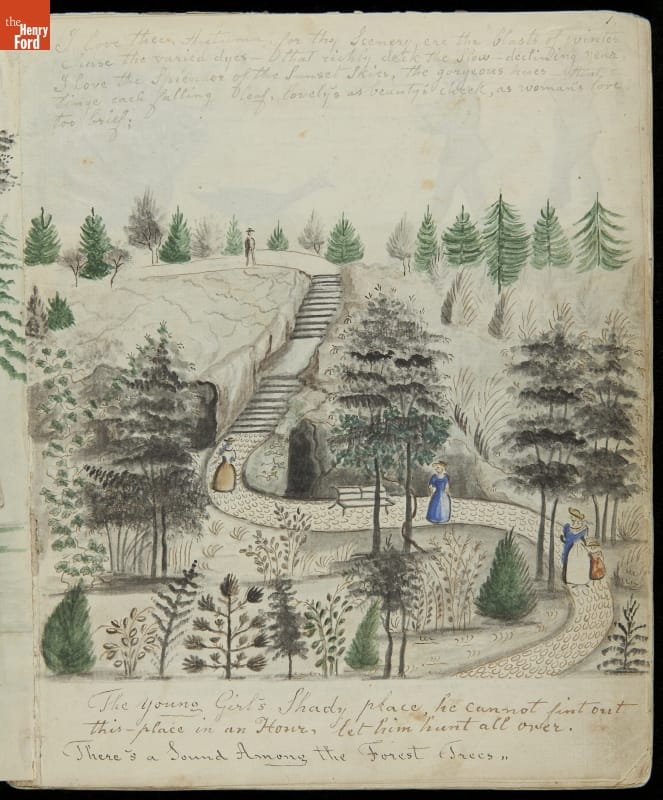 the
Henry
Ford
1.
I love thee, Autumn, for thy Scenery, ere the blasts of winter
the varied dyes — that richly deck the slow — declining year
I love the Splendor of the Sunset Skies, the gorgeous hues — that
tinge each falling leaf, lovely as beauty's cheek, as woman's love
too brief;
The young Girl's Shady place, he cannot fint out
this-place in an Hour, let him hunt all over.
There's a Sound Among the Forest Trees „